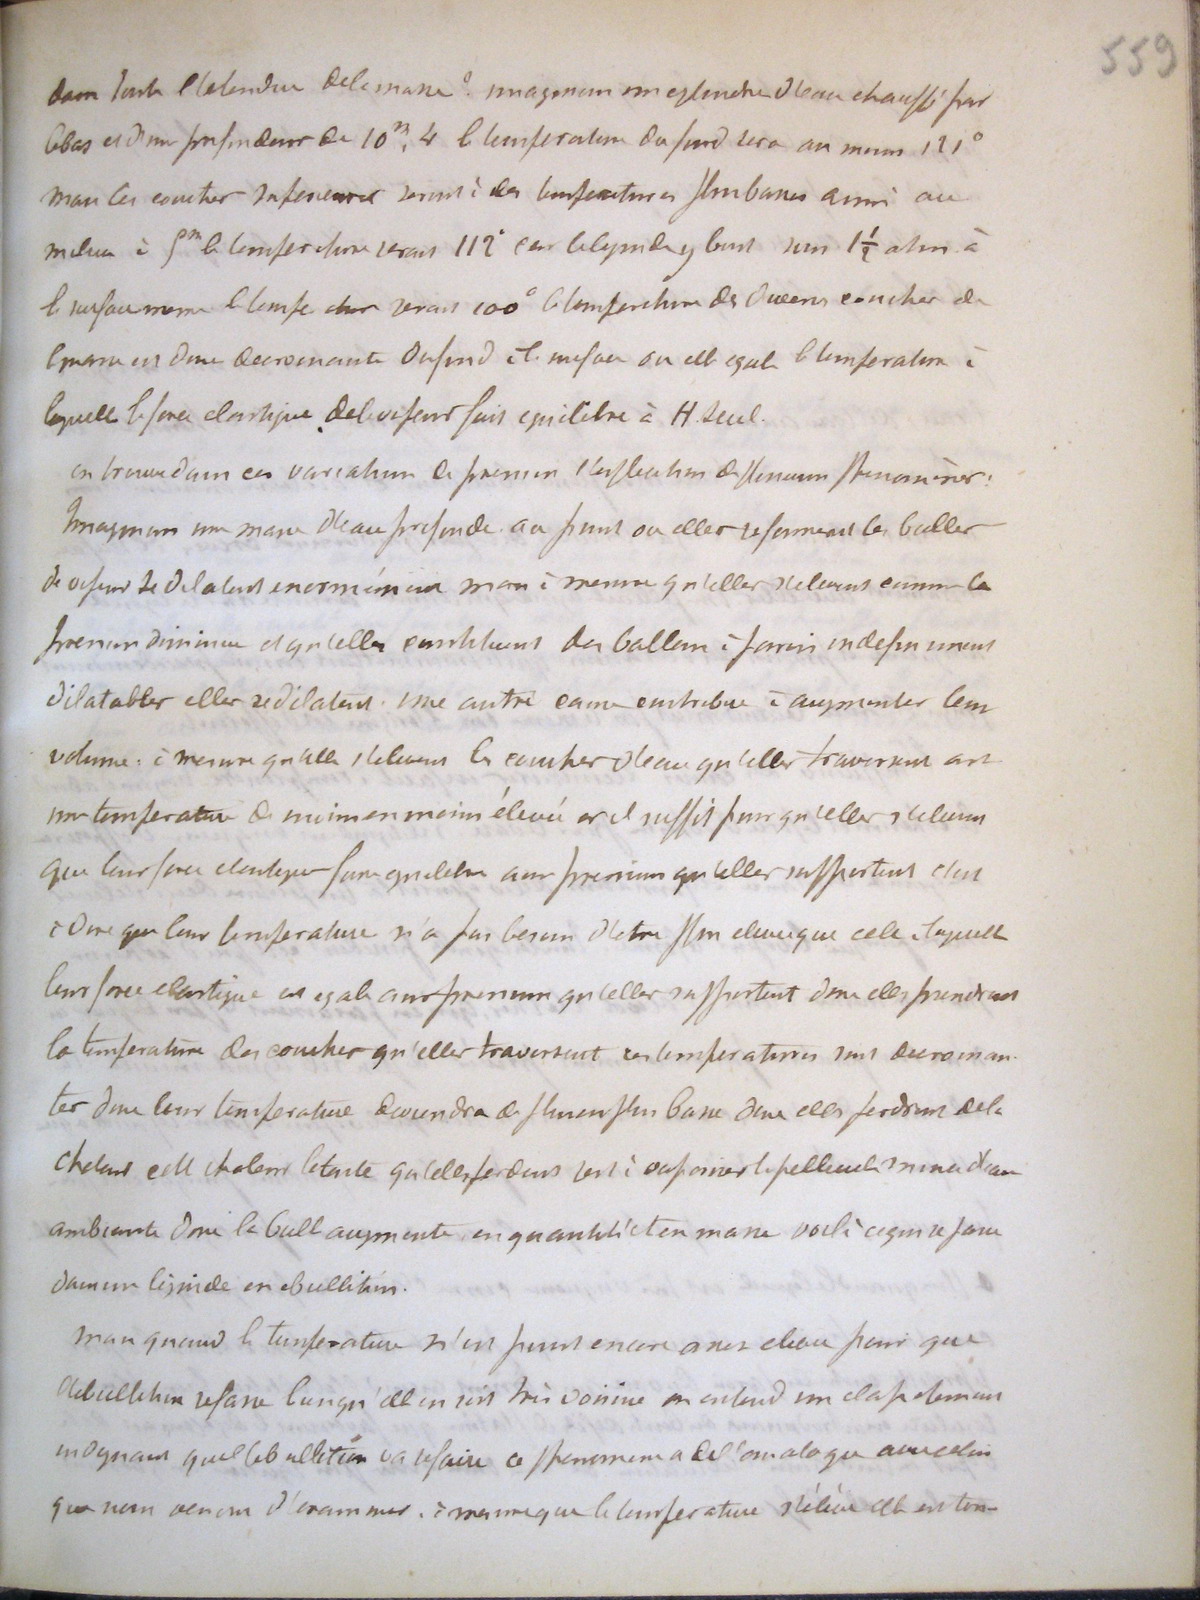 559
dans toute l'etendue de la masse. imaginons un cylindre d'eau chauffé par
le bas et d'une profondeur de 10m,4 la temperature du fond sera au moins 121°
mais les couches superieures seront à des temperatures plus basses ainsi au
milieu à 5m la temperature serait 112° car le liquide y bout sous 1 1/2 atm. à
la surface meme la temperature serait 100° la temperature des diverses couches de
la masse est donc decroissante du fond à la surface ou elle egale la temperature à
laquelle la force elastique de la vapeur fait equilibre à H seul.
on trouve dans ces variations de pression l'explication de plusieurs phenomènes:
Imaginons une masse d'eau profonde. au point ou elles se forment les bulles
de vapeur se dilatent enormément mais à mesure qu'elles s'elevent comme la
pression diminue et qu'elles constituent des ballons à parois indefiniment
dilatables elles se dilatent. une autre cause contribue à augmenter leur
volume. à mesure qu'elles s'elevent les couches d'eau qu'elles traversent ont
une temperature de moins en moins élevée or il suffit pour qu'elles s'elevent
que leur force elastique fasse equilibre aux pressions qu'elles supportent c'est
à dire que leur temperature n'a pas besoin d'etre plus elevee que celle à laquelle
leur force elastique est egale aux pressions qu'elles supportent donc elles prendront
la temperature des couches qu'elles traversent ces temperatures sont decroissan-
tes donc leur temperature deviendra de plus en plus basse donc elles perdront de la
chaleur cette chaleur latente qu'elles perdent sert à vaporiser la pellicule mince d'eau
ambiante donc la bulle augmente en quantité et en masse voilà ce qui se passe
dans un liquide en ebullition.
Mais quand la temperature n'est point encore assez elevee pour que
l'ebullition se fasse lorsqu'elle en est très voisine on entend un clapotement
indiquant que l'ebullition va se faire ce phenomene a de l'analogie avec celui
que nous venons d'examiner. à mesure que la temperature s'élève elle est ton